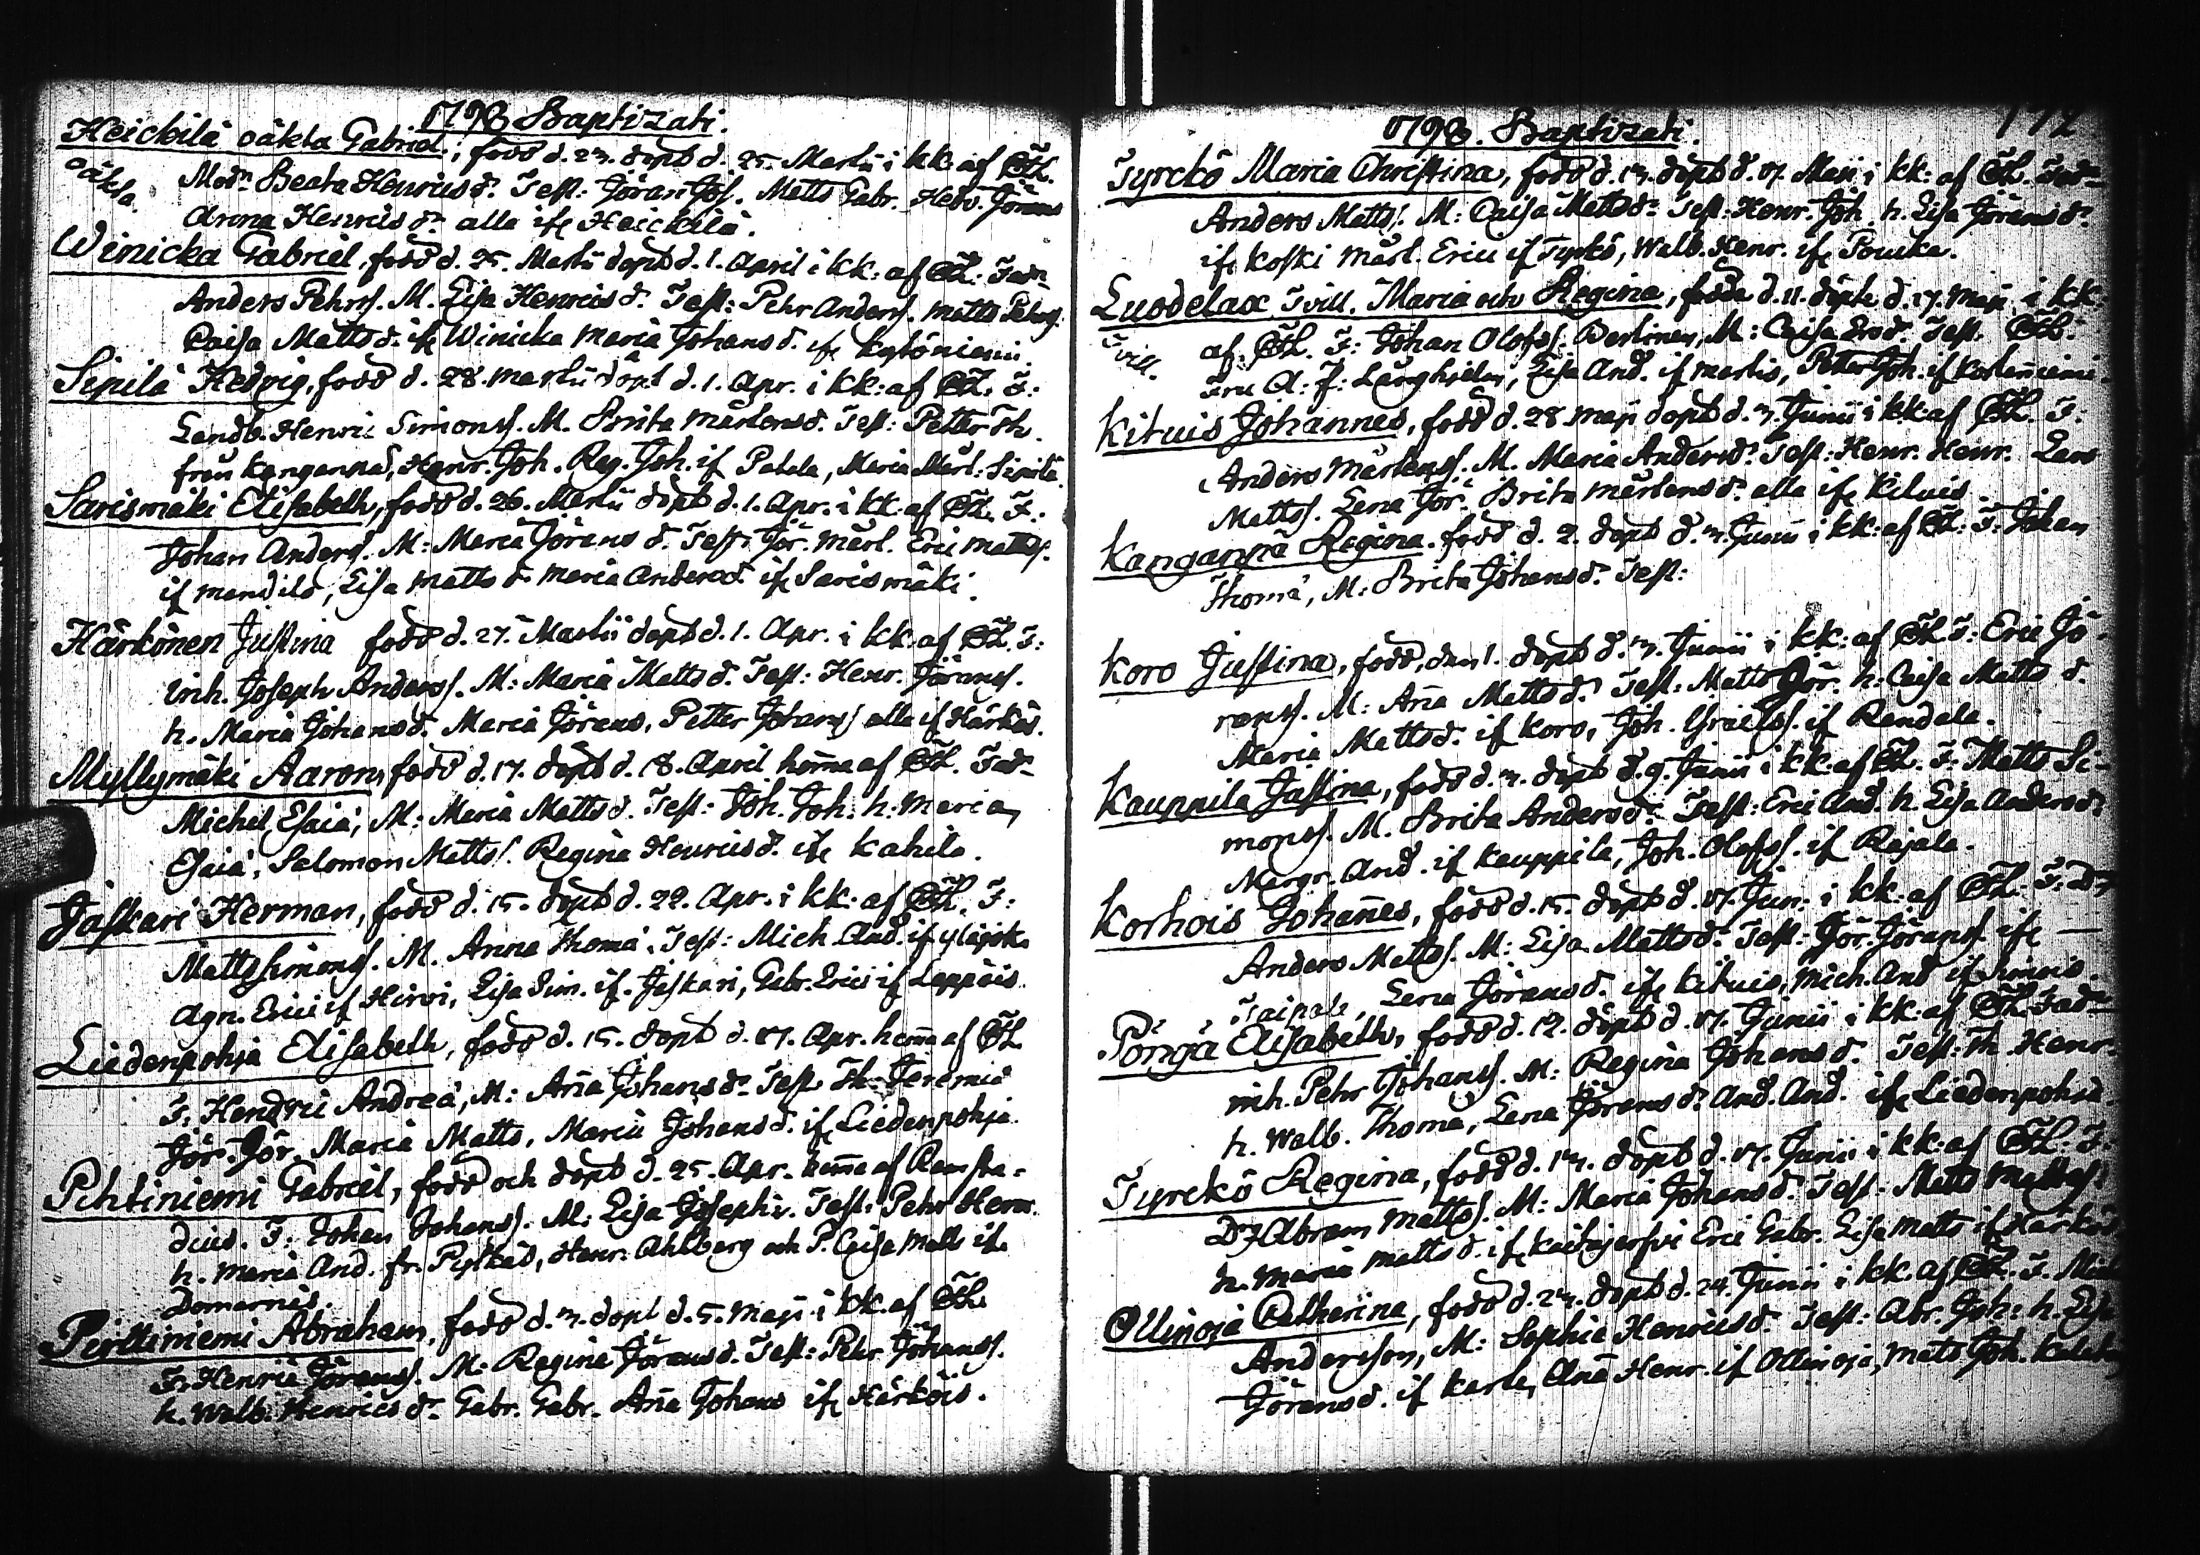 1798 Baptizati.
Heickilä oäkta Gabriel, född d. 23. döpt d. 25. Martii i kk: af TL.
oäkta.
Modn Beata Henricsdr. Test: Jöran Joh. Matts Gabr. Hedv. Jörans
Anna Henricsdr alla ifr Heickilä.
Winicka Gabriel, född d. 25. Martii döpt d. 1. April i kk: af TL. Fadn
Anders Pehrss. M. Lisa Henricsdr. Test: Pehr Anderss. Matts Pehrss.
Caisa Mattsd. ifr Winicka Maria Johansd. ifr Kytöniemi.
Sipilä Hedvig, född d. 28. Martii döpt d. 1. Apr. i kk: af TL. F:
Landb. Henric Simonss. M. Brita Mårtensd. Test: Petter Th.
från Kanganpä, Henr. Joh. Reg. Joh. if Patala, Maria Mårt. Sipilä.
Sarismäki Elisabeth, född d. 26. Martii döpt d. 1. Apr. i kk. af TL. F:
Johan Anderss. M: Maria Jöransd. Test: Jör. Mårt. Eric Mattss.
if Mendilö, Lisa Mattsdr Maria Andersd. ifr Sarismäki.
Härkönen Justina född d. 27. Martii döpt d. 1. Apr. i kk. af TL. F:
Inh. Joseph Anderss. M: Maria Mattsd. Test: Henr. Jöranss.
h. Maria Johansd. Maria Jörans, Petter Johanss alla if Härköis.
Myllymäki Aaron, född d. 17. döpt d. 18. April hema af TL. Fad-
Michel Esaiä, M: Maria Mattsd. Test: Joh. Joh. h. Maria
Esaiä, Salomon Mattss. Regina Henricsd. ifr Kahila.
Jaskari Herman, född d. 15. döpt d. 22. Apr. i kk: af TL. F:
Matts Simonss. M. Anna Thomä. Test: Mich. And. if Yläjoki
Agn. Erici if Hirvi, Lisa Sim. if Jaskari, Gabr. Erici if Leppäis.
Liedenpohja Elisabeth, född d. 15. döpt d. 17. Apr. hema af TL
F. Hendric Andreä, M: Ana Johansdr. Test Th. Jeremiä
Jör. Jör. Maria Matts, Maria Johansd. if Liedenpohja.
Pihtiniemi Gabriel, född och döpt d. 25. Apr. hema af Ramsta-
dius. F: Johan Johanss. M: Lisa Josephi. Test: Pehr Herm.
h. Maria And. fr. Pylkäs, Henr. Ahlberg och P. Caisa Matts ifr
Domarnäs.
Pirttiniemi Abraham, född d. 3. döpt d. 5. Maji i kk. af TL.
F. Henric Jöranss. M: Regina Jöransd. Test: Pehr Johanss.
h. Walb. Henricsdr. Gabr. Gabr. Ana Johans ifr Härköis.
1798. Baptizati.
Tyrckö Maria Christina, född d. 13. döpt d. 17. Maji i kk: af TL. Fad-
Anders Mattss. M: Caisa Mattsdr Test: Henr. Joh. h. Lisa Jöransdr
ifr Koski Mårt. Erici if Tyrkö, Walb. Henr. ifr Pouka.
Luodelax Tvill. Maria och Regina, födde d. 11. döpte d. 27. Maji i kk:
Tvill.
af TL. F: Johan Olofss. Berlinen, M: Caisa Ersdr. Test. TL.
Fru A: F: Långhjelm, Lisa And. if Martis, Petter Joh. if Korteniemi.
Kituis Johannes, född d. 28 Maji döpt d. 3. Junii i kk af TL. F:
Anders Mårtenss. M. Maria Andersdr. Test: Henr. Henr. Lars
Mattss. Lena Jör. Brita Mårtensdr. alla ifr Kituis.
Kanganpä Regina. född d. 2. döpt d. 3. Junii i kk: af TL: F: Johan
Thomä, M: Brita Johansdr. Test:
Koro Justina, född, den 1. döpt d. 3. Junii i kk: af TL. F: Eric Jö-
ranss. M: Ana Mattsdr. Test: Matts Jör. h. Caisa Matts d.
Maria Mattsd. if Koro, Joh. Grelss. if Randala.
Kauppila Justina, född d. 3. döpt d. 9. Junii i kk: af TL. F: Matts Si-
monss. M. Brita Andersdr. Test: Eric And. h. Lisa Andersdr
Margr. And. if Kauppila, Joh. Olofss. if Rajala.
Korhois Johanes, född d. 15. döpt d. 17. Jun. i kk: af TL. F. Dr
Anders Mattss. M: Lisa Mattsdr. Test: Jör. Jöranss. ifr
Taipale, Lena Jöransd. ifr Kituis, Mich. And if
Pöngä Elisabeth, född d. 12. döpt d. 17. Junii i kk: af TL. Fadn
inh. Pehr Johanss. M: Regina Johansdr. Test: Th. Henr.
h. Walb. Thomä, Lena Jöransdr. And. And. ifr Liedenpohja.
Tyrckö Regina, född d. 13. döpt d. 17. Junii i kk: af TL. F:
Dr Abram Mattss. M: Maria Johansdr. Test: Matts Mattss
h. Maria Mattsd. ifr Kaitajerfvi Eric Gabr. Lisa Matts if Härköis
Ollinoja Catharina, född d. 23. döpt d. 24. Junii i kk. af TL. F.
Anderson, M: Sophia Henricsdr. Test: Abr. Joh. h. Lisa
Jöransd. if Karle, Ana Henr. if Ollinoja, Mats Joh.